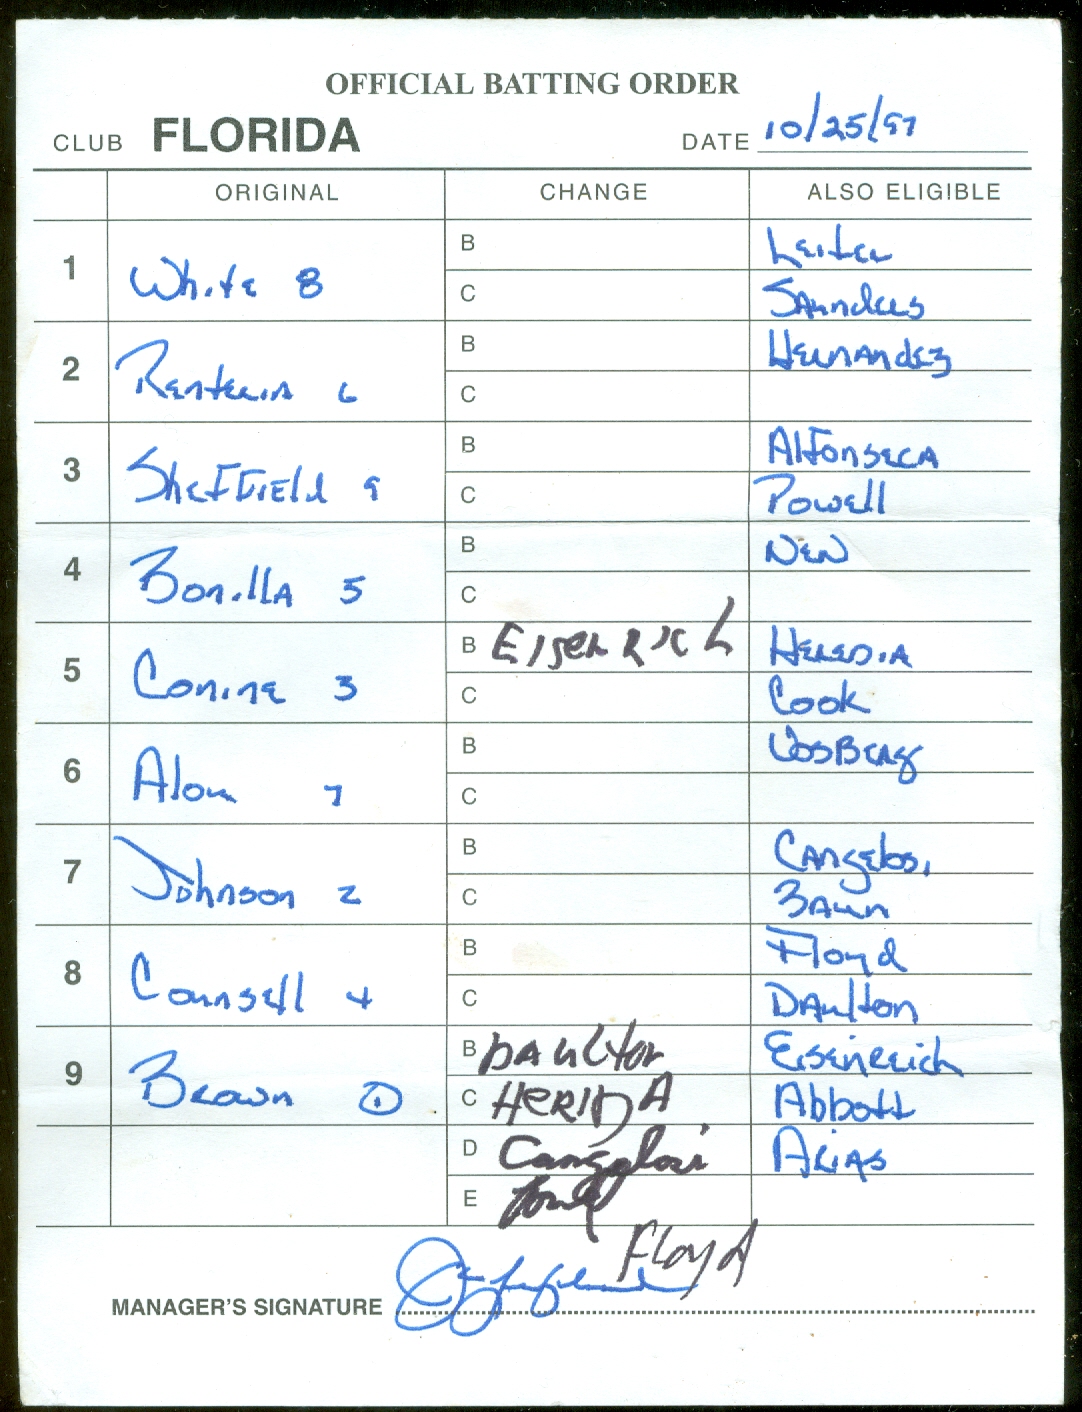 OFFICIAL BATTING ORDER
CLUB FLORIDA DATE 10/25/97
ORIGINAL CHANGE ALSO ELIGIBLE
1 White 8 B Leiter
C Saunders
2 Renteria 6 B Hernandez
C
3 Sheffield 9 B Alfonseca
C Powell
4 Bonilla 5 B Nen
C
5 Conine 3 B Eisenrich Heredia
C Cook
6 Alou 7 B Vosberg
C
7 Johnson 2 B Cangelosi
C Zaun
8 Counsell 4 B Floyd
C Daulton
9 Brown 1 B DAULton Eisenreich
C HERIDA Abbott
D Cangelosi Arias
E
Floyd
MANAGER'S SIGNATURE